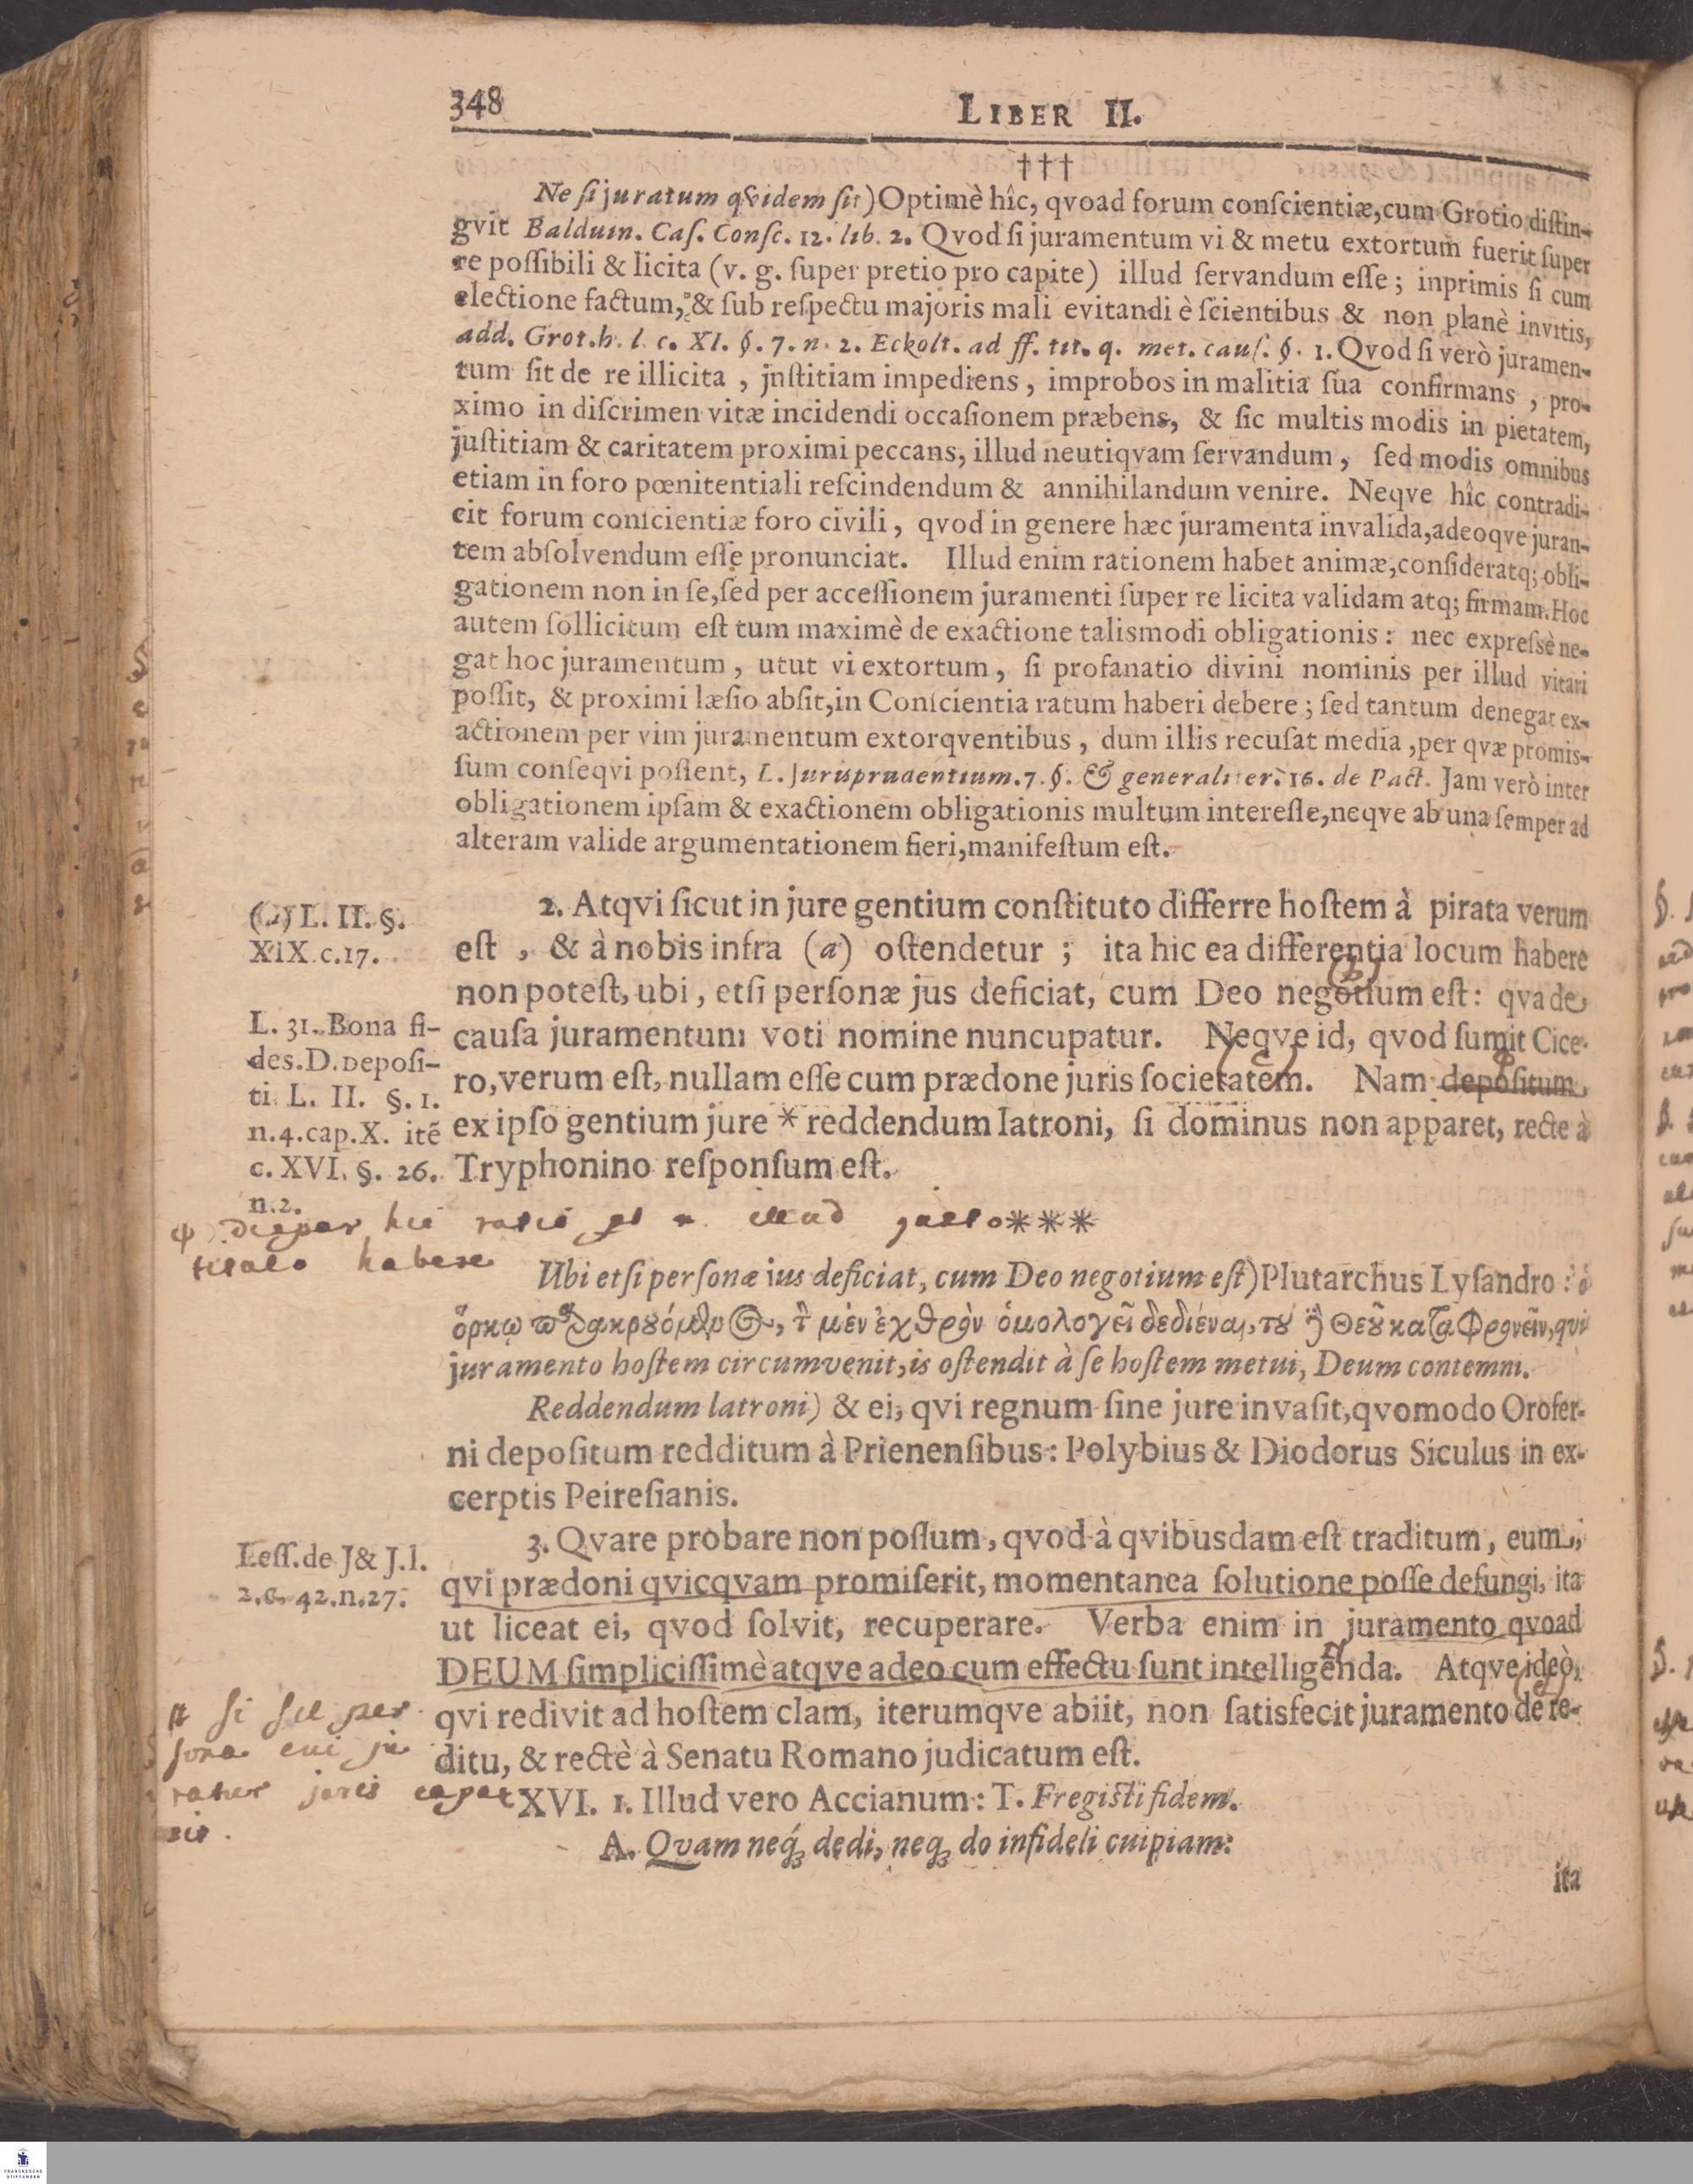 348 LIBER II.
†††
Ne ſi juratum qvidem ſit) Optimè hîc, qvoad forum conſcientiæ, cum Grotio diſtin-
gvit Balduin. Caſ. Conſc. 12. lib. 2. Qvod ſi juramentum vi & metu extortum fuerit ſuper
re poſſibili & licita (v. g. ſuper pretio pro capite) illud ſervandum eſſe; inprimis ſi cum
electione factum, & ſub reſpectu majoris mali evitandi è ſcientibus & non planè invitis,
add. Grot. h. l. c. XI. §. 7. n. 2. Eckolt. ad ff. tit. q. met. cauſ. §. 1. Qvod ſi verò juramen-
tum ſit de re illicita, juſtitiam impediens, improbos in malitia ſua confirmans, pro-
ximo in diſcrimen vitæ incidendi occaſionem præbens, & ſic multis modis in pietatem,
juſtitiam & caritatem proximi peccans, illud neutiqvam ſervandum, ſed modis omnibus
etiam in foro pœnitentiali reſcindendum & annihilandum venire. Neqve hîc contradi-
cit forum conſcientiæ foro civili, qvod in genere hæc juramenta invalida, adeoqve juran-
tem abſolvendum eſſe pronunciat. Illud enim rationem habet animæ, conſideratq; obli-
gationem non in ſe, ſed per acceſſionem juramenti ſuper re licita validam atq; firmam. Hoc
autem ſollicitum eſt tum maximè de exactione talismodi obligationis: nec expreſsè ne-
gat hoc juramentum, utut vi extortum, ſi profanatio divini nominis per illud vitari
poſſit, & proximi læſio abſit, in Conſcientia ratum haberi debere; ſed tantum denegat ex-
actionem per vim juramentum extorqventibus, dum illis recuſat media, per qvæ promis-
ſum conſeqvi poſſent, L. Jurisprudentium. 7. §. & generaliter. 16. de Pact. Jam verò inter
obligationem ipſam & exactionem obligationis multum intereſſe, neqve ab una ſemper ad
alteram valide argumentationem fieri, manifeſtum eſt.
(a) L. II. §.
XIX. c. 17.
2. Atqvi ſicut in jure gentium conſtituto differre hoſtem à pirata verum
eſt, & à nobis infra (a) oſtendetur; ita hic ea differentia locum habere
non poteſt, ubi, etſi perſonæ jus deficiat, cum Deo negotium eſt: qva de
cauſa juramentum voti nomine nuncupatur. Neqve id, qvod ſumit Cice-
ro, verum eſt, nullam eſſe cum prædone juris ſocietatem. Nam depoſitum
ex ipſo gentium jure * reddendum latroni, ſi dominus non apparet, recte à
Tryphonino reſponſum eſt.
L. 31. Bona fi-
des. D. Depoſi-
ti L. II. §. 1.
n. 4. cap. X. itẽ
c. XVI. §. 26.
n. 2.
illud
titulo habere
***
Ubi etſi perſonæ ius deficiat, cum Deo negotium eſt) Plutarchus Lyſandro: ὁ
ὅρκῳ παρακρουόμενος, τ̀ μὲν ἐχθρὸν ὁμολογεῖ δεδιέναι, τοῦ ἢ Θεοῦ καταφρονεῖν, qui
juramento hoſtem circumvenit, is oſtendit à ſe hoſtem metui, Deum contemni.
Reddendum latroni) & ei, qvi regnum ſine jure invaſit, qvomodo Orofer-
ni depoſitum redditum à Prienenſibus: Polybius & Diodorus Siculus in ex-
cerptis Peireſianis.
Leſſ. de J & J. l.
2. c. 42. n. 27.
3. Qvare probare non poſſum, qvod à qvibusdam eſt traditum, eum,
qvi prædoni qvicqvam promiſerit, momentanea ſolutione poſſe defungi, ita
ut liceat ei, qvod ſolvit, recuperare. Verba enim in juramento qvoad
DEUM ſimpliciſſimè atqve adeo cum effectu ſunt intelligenda. Atqve ideò,
qvi redivit ad hoſtem clam, iterumqve abiit, non ſatisfecit juramento de re-
ditu, & rectè à Senatu Romano judicatum eſt.
si sit per
sona cui ju
ratur juris capax
sit.
XVI. 1. Illud vero Accianum: T. Fregiſti fidem.
A. Qvam neq; dedi, neq; do infideli cuipiam:
ita
FRANCKESCHE
STIFTUNGEN